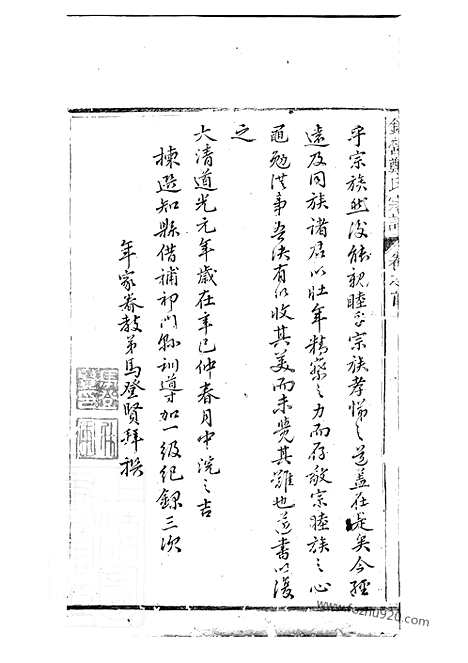 乎宗族然後能親睦乎宗族孝悌之道蓋在是矣今經
遠及同族諸君以壯年精察之力而存敬宗睦族之心
黽勉從事吾佚有以收其美而未覺其難也并書以復
之
大清道光元年歲在辛巳仲春月中浣之吉
揀選知縣借補祁門縣訓導加一級紀錄三次
年家眷教弟馬登賢拜撰
鄭氏宗 卷之首
www.fozhu920.com